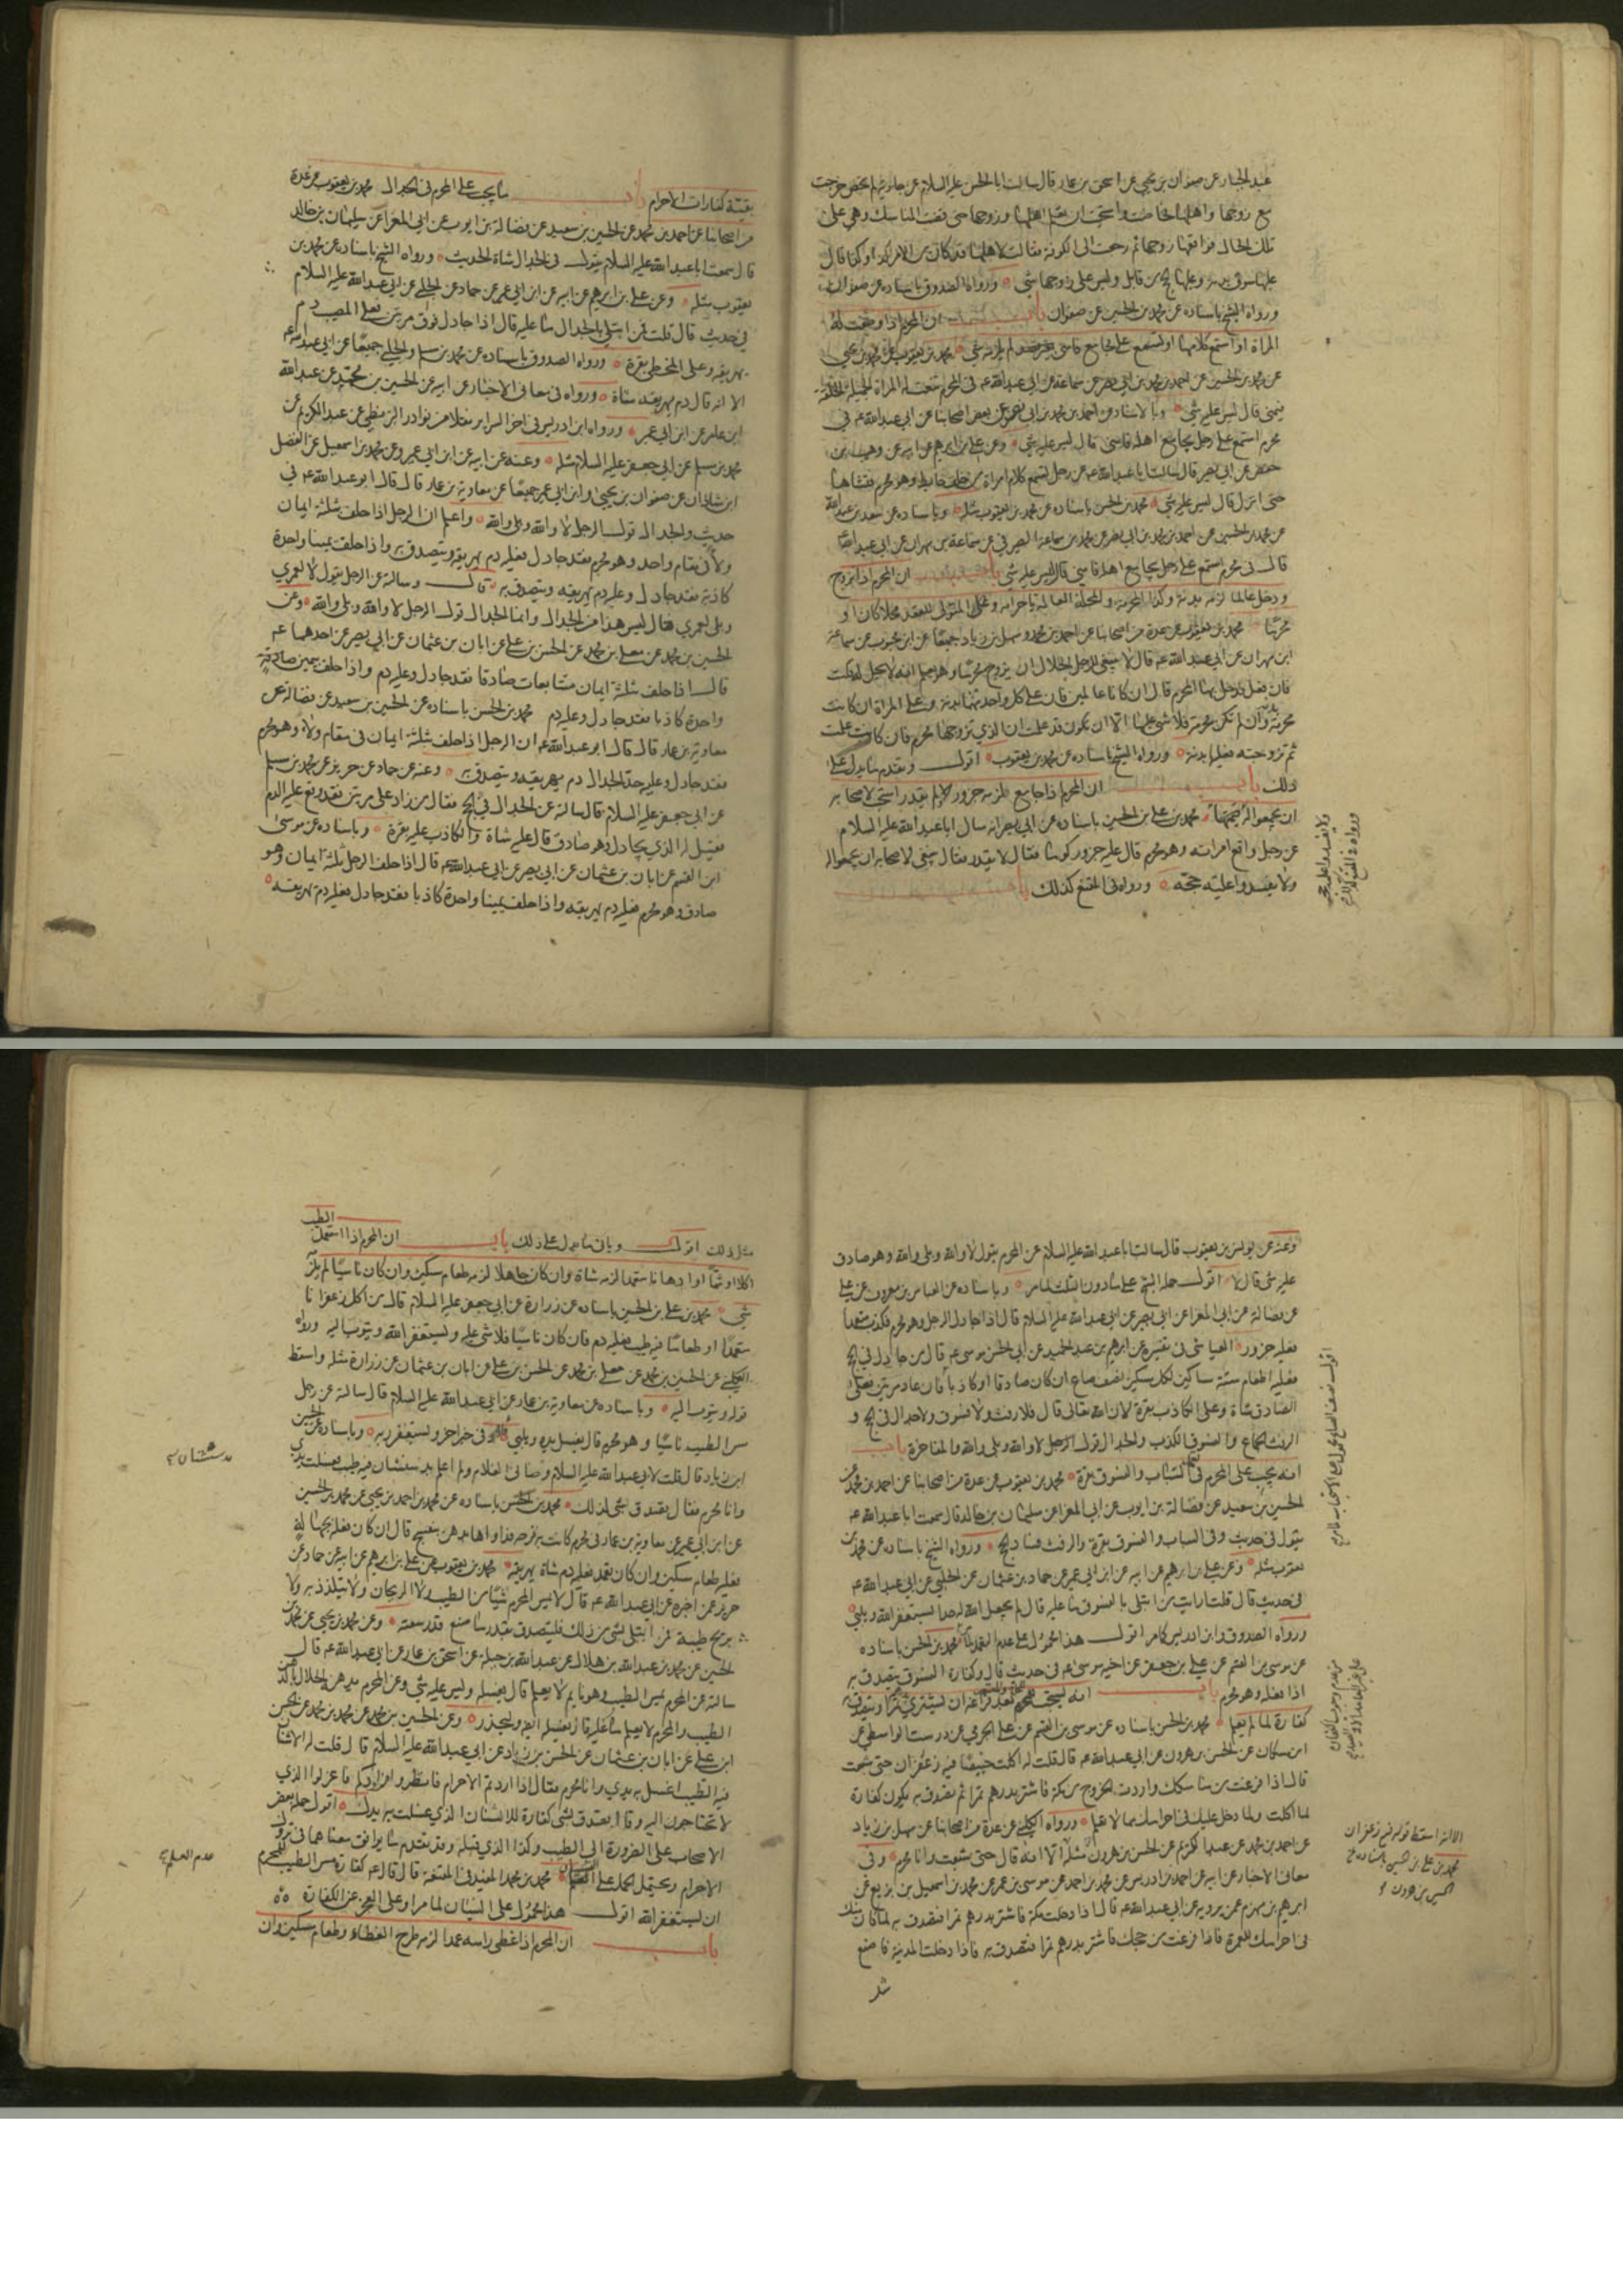 عبد الجبار عن صفوان بن يحيى عن اسحق بن عمار قال سالت ابا الحسن عليه السلام عن جارية لم تحض خرجت
مع زوجها واهلها فحاضت واستحيت ان تعلم اهلها وزوجها حتى قضت المناسك وهي على
تلك الحال فواقعها زوجها ثم رجعت الى الكوفة فقالت لاهلها قد كان من الامر كذا وكذا قال
عليها سوق بدنة وعليها الحج من قابل وليس على زوجها شي ورواه الصدوق باسناده عن صفوان
ورواه الشيخ باسناده عن محمد بن الحسين عن صفوان باب ان المحرم اذا وصفت له
المراة او استمع كلامها او تسمع على مجامع فامنى لم يلزمه شي محمد بن يعقوب عن محمد بن يحيى
عن محمد بن الحسين عن احمد بن محمد بن ابي نصر عن سماعة عن ابي عبد الله عه في المحرم تنعت له المراة الجميلة الخلقة
فيمني قال ليس عليه شي وبالاسناد عن احمد بن محمد بن ابي نصر عن بعض اصحابنا عن ابي عبد الله عه في
محرم استمع على رجل يجامع اهله فامنى قال ليس عليه شي وعن علي بن ابرهيم عن ابيه عن وهيب بن
حفص عن ابي بصير قال سالت ابا عبد الله عه عن رجل تسمع كلام امراة من خلف حايط وهو محرم فتشاها
حتى انزل قال ليس عليه شي محمد بن الحسن باسناده عن محمد بن يعقوب مثله وباسناده عن سعد بن عبد الله
عن محمد بن الحسين عن احمد بن محمد بن ابي نصر عن محمد بن سماعة الصيرفي عن سماعة بن مهران عن ابي عبد الله
قال في محرم استمع على رجل يجامع اهله فامنى قال ليس عليه شي باب ان المحرم اذا تزوج
ودخل عالما لزمه بدنة وكذا المحرمة والمحلة العالمة باحرامه وعلى المتولي للعقد محلا كان او
محرما محمد بن يعقوب عن عدة من اصحابنا عن احمد بن محمد وسهل بن زياد جميعا عن ابن محبوب عن سماعة
ابن مهران عن ابي عبد الله عه قال لا ينبغي للرجل الحلال ان يزوج محرما وهو يعلم انه لا يحل له قلت
فان فعل فدخل بها المحرم قال ان كانا عالمين فان على كل واحد منهما بدنة وعلى المراة ان كانت
محرمة وان لم تكن محرمة فلا شي عليها الا ان تكون قد علمت ان الذي تزوجها محرم فان كانت علمت
ثم تزوجته فعليها بدنة ورواه الشيخ باسناده عن محمد بن يعقوب اقول وتقدم ما يدل على
ذلك باب ان المحرم اذا جامع فلزمه جزور ولم يقدر استحب لاصحابه
ان يجمعوا له قيمتها محمد بن علي بن الحسين باسناده عن ابي بصير انه سال ابا عبد الله عليه السلام
عن رجل واقع امراته وهو محرم قال عليه جزور كوما فقال لا يقدر فقال ينبغي لاصحابه ان يجمعوا له
ولا يفسدوا عليه حجه ورواه في المقنع كذلك
بقية كفارات الاحرام باب ما يجب على المحرم في الجدال محمد بن يعقوب عن عدة
من اصحابنا عن احمد بن محمد عن الحسين بن سعيد عن فضالة بن ايوب عن ابي المعزا عن سليمان بن خالد
قال سمعت ابا عبد الله عليه السلام يقول في الجدال شاة الحديث ورواه الشيخ باسناده عن محمد بن
يعقوب مثله وعن علي بن ابرهيم عن ابيه عن ابن ابي عمير عن حماد عن الحلبي عن ابي عبد الله عليه السلام
في حديث قال قلت فمن ابتلي بالجدال ما عليه قال اذا جادل فوق مرتين فعلى المصيب دم
يهريقه وعلى المخطي بقرة ورواه الصدوق باسناده عن محمد بن مسلم والحلبي جميعا عن ابي عبد الله عه
الا انه قال دم يهريقه شاة ورواه في معاني الاخبار عن ابيه عن الحسين بن محمد عن عبد الله
ابن عامر عن ابن ابي عمير ورواه ابن ادريس في اخر السراير نقلا من نوادر البزنطي عن عبد الكريم عن
محمد بن مسلم عن ابي جعفر عليه السلام مثله وعنه عن ابيه عن ابن ابي عمير وعن محمد بن اسمعيل عن الفضل
ابن شاذان عن صفوان بن يحيى وابن ابي عمير جميعا عن معاوية بن عمار قال قال ابو عبد الله عه في
حديث والجدال قول الرجل لا والله وبلى والله واعلم ان الرجل اذا حلف بثلثة ايمان
ولاء في مقام واحد وهو محرم فقد جادل فعليه دم يهريقه ويتصدق به واذا حلف يمينا واحدة
كاذبة فقد جادل وعليه دم يهريقه ويتصدق به قال وسالته عن الرجل يقول لا لعمري
وبلى لعمري فقال ليس هذا من الجدال وانما الجدال قول الرجل لا والله وبلى والله وعن
الحسين بن محمد عن معلى بن محمد عن الحسن بن علي عن ابان بن عثمان عن ابي بصير عن احدهما عه
قال اذا حلف ثلثة ايمان متتابعات صادقا فقد جادل وعليه دم واذا حلف بيمين
واحدة كاذبا فقد جادل وعليه دم محمد بن الحسن باسناده عن الحسين بن سعيد عن فضالة عن
معاوية بن عمار قال قال ابو عبد الله عه ان الرجل اذا حلف ثلثة ايمان في مقام ولاء وهو محرم
فقد جادل وعليه حد الجدال دم يهريقه ويتصدق به وعنه عن حماد عن حريز عن محمد بن مسلم
عن ابي جعفر عليه السلام قال سالته عن الجدال في الحج فقال من زاد على مرتين فقد وقع عليه الدم
فقيل له الذي يجادل وهو صادق قال عليه شاة والكاذب عليه بقرة وباسناده عن موسى
ابن القسم عن ابان بن عثمان عن ابي بصير عن ابي عبد الله عه قال اذا حلف الرجل ثلثة ايمان وهو
صادق وهو محرم فعليه دم يهريقه واذا حلف يمينا واحدة كاذبا فقد جادل فعليه دم يهريقه
وعنه عن يونس بن يعقوب قال سالت ابا عبد الله عليه السلام عن المحرم يقول لا والله وبلى والله وهو صادق
عليه شي قال لا اقول حمله الشيخ على ما دون الثلث لما مر وباسناده عن العباس بن معروف عن علي
عن فضالة عن ابي المعزا عن ابي بصير عن ابي عبد الله عليه السلام قال اذا جادل الرجل وهو محرم فكذب متعمدا
فعليه جزور العياشي في تفسيره عن ابرهيم بن عبد الحميد عن ابي الحسن موسى عه قال من جادل في الحج
فعليه اطعام ستة مساكين لكل مسكين نصف صاع ان كان صادقا او كاذبا فان عاد مرتين فعلى
الصادق شاة وعلى الكاذب بقرة لان الله تعالى قال فلا رفث ولا فسوق ولا جدال في الحج و
الرفث الجماع والفسوق الكذب والجدال قول الرجل لا والله وبلى والله والمفاخرة باب
انه يجب على المحرم في السباب والفسوق بقرة محمد بن يعقوب عن عدة من اصحابنا عن احمد بن محمد عن
الحسين بن سعيد عن فضالة بن ايوب عن ابي المعزا عن سليمان بن خالد قال سمعت ابا عبد الله عه
يقول في حديث وفي السباب والفسوق بقرة والرفث فساد الحج ورواه الشيخ باسناده عن محمد بن
يعقوب مثله وعن علي بن ابرهيم عن ابيه عن ابن ابي عمير عن حماد بن عثمان عن الحلبي عن ابي عبد الله عه
في حديث قال قلت ارايت من ابتلي بالفسوق ما عليه قال لم يجعل الله له حدا يستغفر الله ويلبي
ورواه الصدوق وابن ادريس كما مر اقول هذا محمول على عدم التعمد محمد بن الحسن باسناده
عن موسى بن القسم عن علي بن جعفر عن اخيه موسى عه في حديث قال وكفارة الفسوق يتصدق به
اذا فعله وهو محرم باب انه يستحب للمحرم بعد فراغه ان يشتري تمرا ويتصدق به
كفارة لما لم يعلم محمد بن الحسن باسناده عن موسى بن القسم عن علي الجرمي عن درست الواسطي عن
ابن مسكان عن الحسن بن هرون عن ابي عبد الله عه قال قلت له اكلت خبيصا فيه زعفران حتى شبعت
قال اذا فرغت من مناسكك واردت الخروج من مكة فاشتر بدرهم تمرا ثم تصدق به يكون كفارة
لما اكلت ولما دخل عليك في احرامك مما لا تعلم ورواه الكليني عن عدة من اصحابنا عن سهل بن زياد
عن احمد بن محمد عن عبد الكريم عن الحسن بن هرون مثله الا انه قال حتى شبعت وانا محرم وفي
معاني الاخبار عن ابيه عن احمد بن ادريس عن محمد بن احمد عن موسى بن عمر عن محمد بن اسمعيل بن بزيع عن
ابرهيم بن مهزم عمن يرويه عن ابي عبد الله عه قال اذا دخلت مكة فاشتر بدرهم تمرا فتصدق به لما كان منك
في احرامك للعمرة فاذا فرغت من حجك فاشتر بدرهم تمرا فتصدق به فاذا دخلت المدينة فاصنع
الا انه اسقط قوله فيه زعفران
محمد بن علي بن الحسين باسناده عن
الحسن بن هرون
مثل ذلك اقول وياتي ما يدل على ذلك باب ان المحرم اذا استعمل الطيب
اكلا او شما او ادهانا متعمدا لزمه شاة وان كان جاهلا لزمه طعام مسكين وان كان ناسيا لم يلزمه
شي محمد بن علي بن الحسين باسناده عن زرارة عن ابي جعفر عليه السلام قال من اكل زعفرانا
متعمدا او طعاما فيه طيب فعليه دم فان كان ناسيا فلا شي عليه ويستغفر الله ويتوب اليه ورواه
الكليني عن الحسين بن محمد عن معلى بن محمد عن الحسن بن علي عن ابان بن عثمان عن زرارة مثله واسقط
قوله ويتوب اليه وباسناده عن معاوية بن عمار عن ابي عبد الله عليه السلام قال سالته عن رجل
مس الطيب ناسيا وهو محرم قال يغسل يده ويلبي وفي خبر اخر ويستغفر ربه وباسناده عن الحسن
ابن زياد قال قلت لابي عبد الله عليه السلام وضاني الغلام ولم اعلم بدستشان فيه طيب فغسلت يدي
وانا محرم فقال تصدق بشي لذلك محمد بن الحسن باسناده عن محمد بن احمد بن يحيى عن محمد بن الحسين
عن ابن ابي عمير عن معاوية بن عمار في محرم كانت به قرحة فداواها بدهن بنفسج قال ان كان فعله بجهالة
فعليه طعام مسكين وان كان تعمد فعليه دم شاة يهريقه محمد بن يعقوب عن علي بن ابرهيم عن ابيه عن حماد عن
حريز عمن اخبره عن ابي عبد الله عه قال لا يمس المحرم شيئا من الطيب ولا الريحان ولا يتلذذ به ولا
بريح طيبة فمن ابتلي بشي من ذلك فليتصدق بقدر ما صنع قدر سعته وعن محمد بن يحيى عن محمد بن
الحسين عن محمد بن عبد الله بن هلال عن عبد الله بن جبلة عن اسحق بن عمار عن ابي عبد الله عه قال
سالته عن المحرم يمس الطيب وهو نايم لا يعلم قال يغسله وليس عليه شي وعن المحرم يدهنه الحلال بالدهن
الطيب والمحرم لا يعلم ما عليه قال يغسله ايضا وليحذر وعن الحسين بن محمد عن محمد عن الحسن
ابن علي عن ابان بن عثمان عن الحسن بن زياد عن ابي عبد الله عليه السلام قال قلت له الاشنان
فيه الطيب اغسل به يدي وانا محرم فقال اذا اردتم الاحرام فانظروا مزاودكم فاعزلوا الذي
لا تحتاجون اليه وقال تصدق بشي كفارة للاشنان الذي غسلت به يدك اقول حمله بعض
الاصحاب على الضرورة الى الطيب وكذا الذي قبله وقد تقدم ما يوافق معناهما في تروك
الاحرام ويحتمل الحمل على محمد بن محمد المفيد في المقنعة قال قال عه كفارة مس الطيب للمحرم
ان يستغفر الله اقول هذا محمول على النسيان لما مر او على العجز عن الكفارة
باب ان المحرم اذا غطى راسه عمدا لزمه طرح الغطاء وطعام مسكين وان
عدم العلم